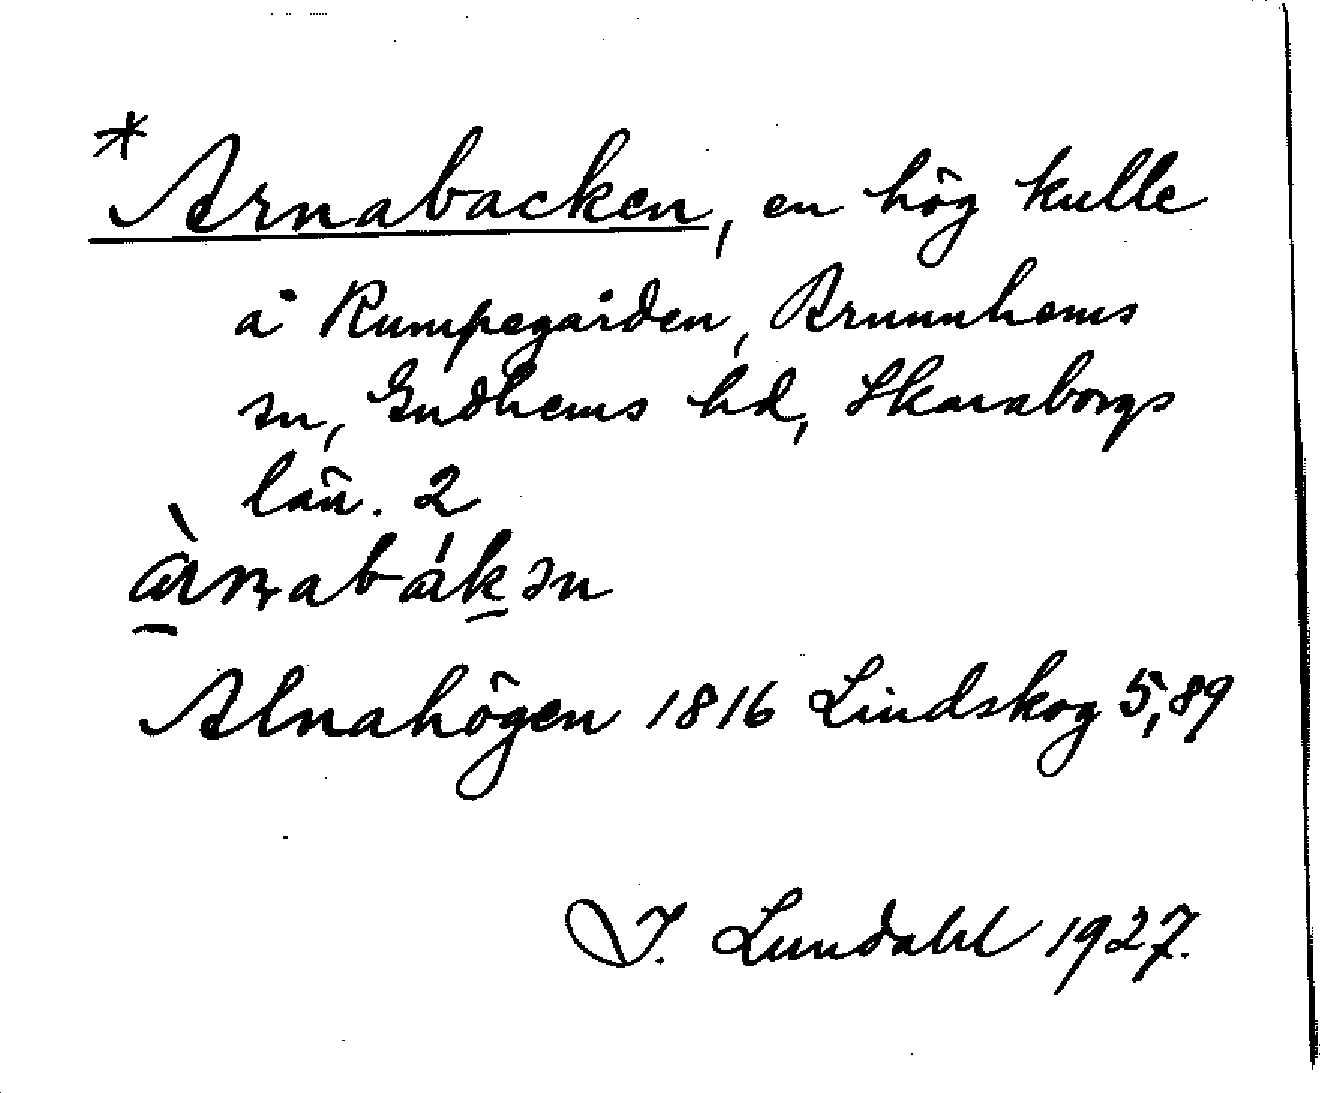 *Arnabacken, en hög kulle
å Rumpegården, Brunnhems
sn, Gudhems hd, Skaraborgs
län. 2
Alnahögen 1816 Lindskog 5,89
I. Lundahl 1927.